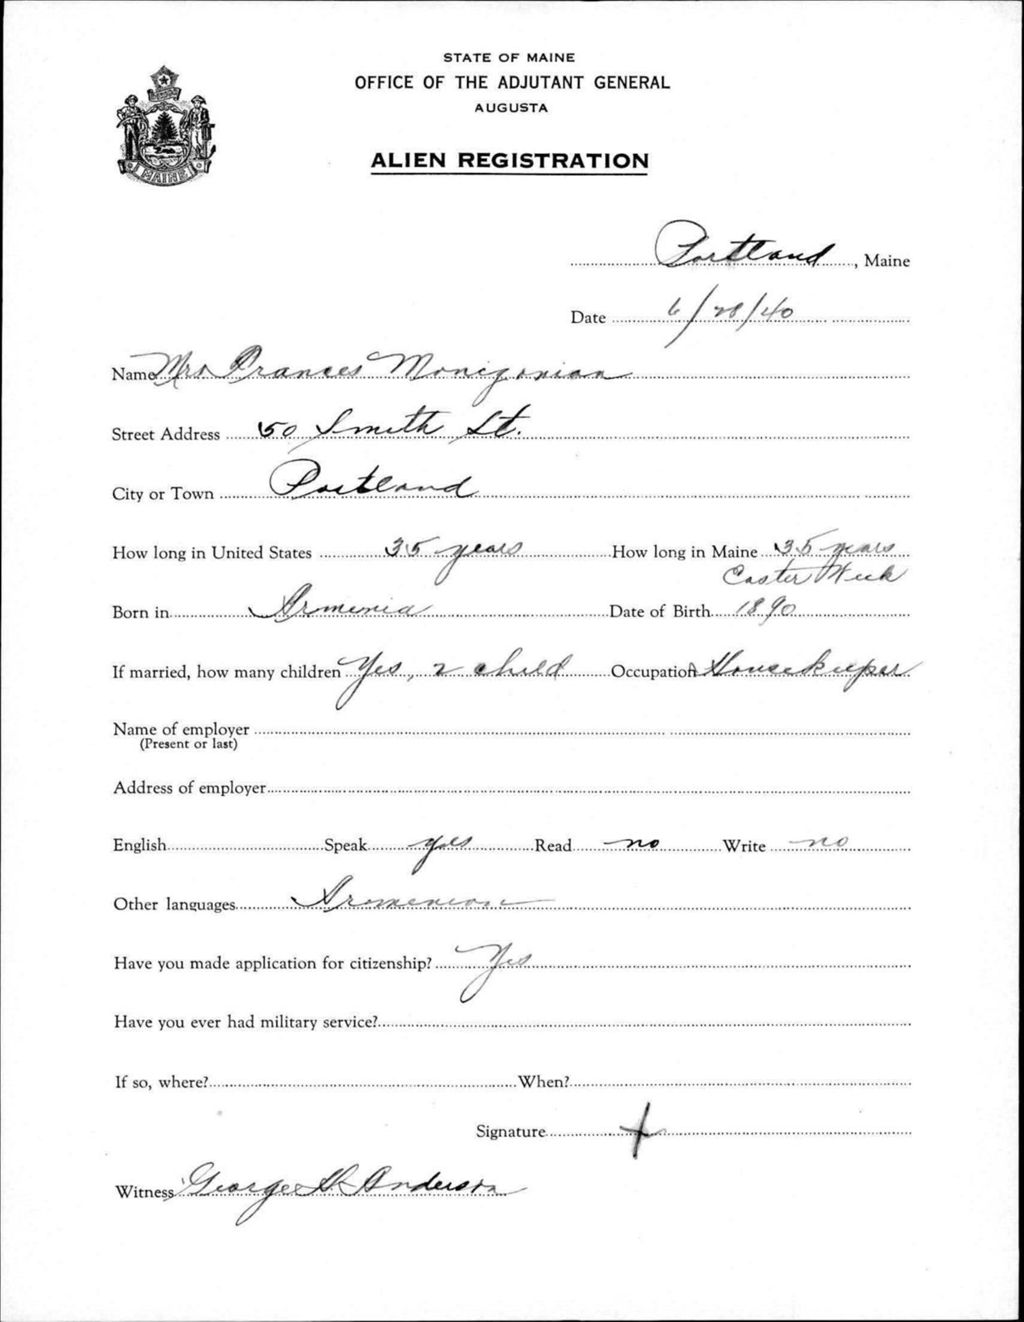 STATE OF MAINE
OFFICE OF THE ADJUTANT GENERAL
AUGUSTA
ALIEN REGISTRATION
MAINE
Portland, Maine
Date 6/28/40
Name Mrs Frances Monigonian
Street Address 50 Smith St.
City or Town Portland
How long in United States 35 years How long in Maine 35 years
Easter Week
Born in Armenia Date of Birth 1890
If married, how many children Yes, 2 child Occupation Housekeeper
Name of employer
(Present or last)
Address of employer
English Speak yes Read no Write no
Other languages Armenian
Have you made application for citizenship? Yes
Have you ever had military service?
If so, where? When?
Signature X
Witness George H Anderson